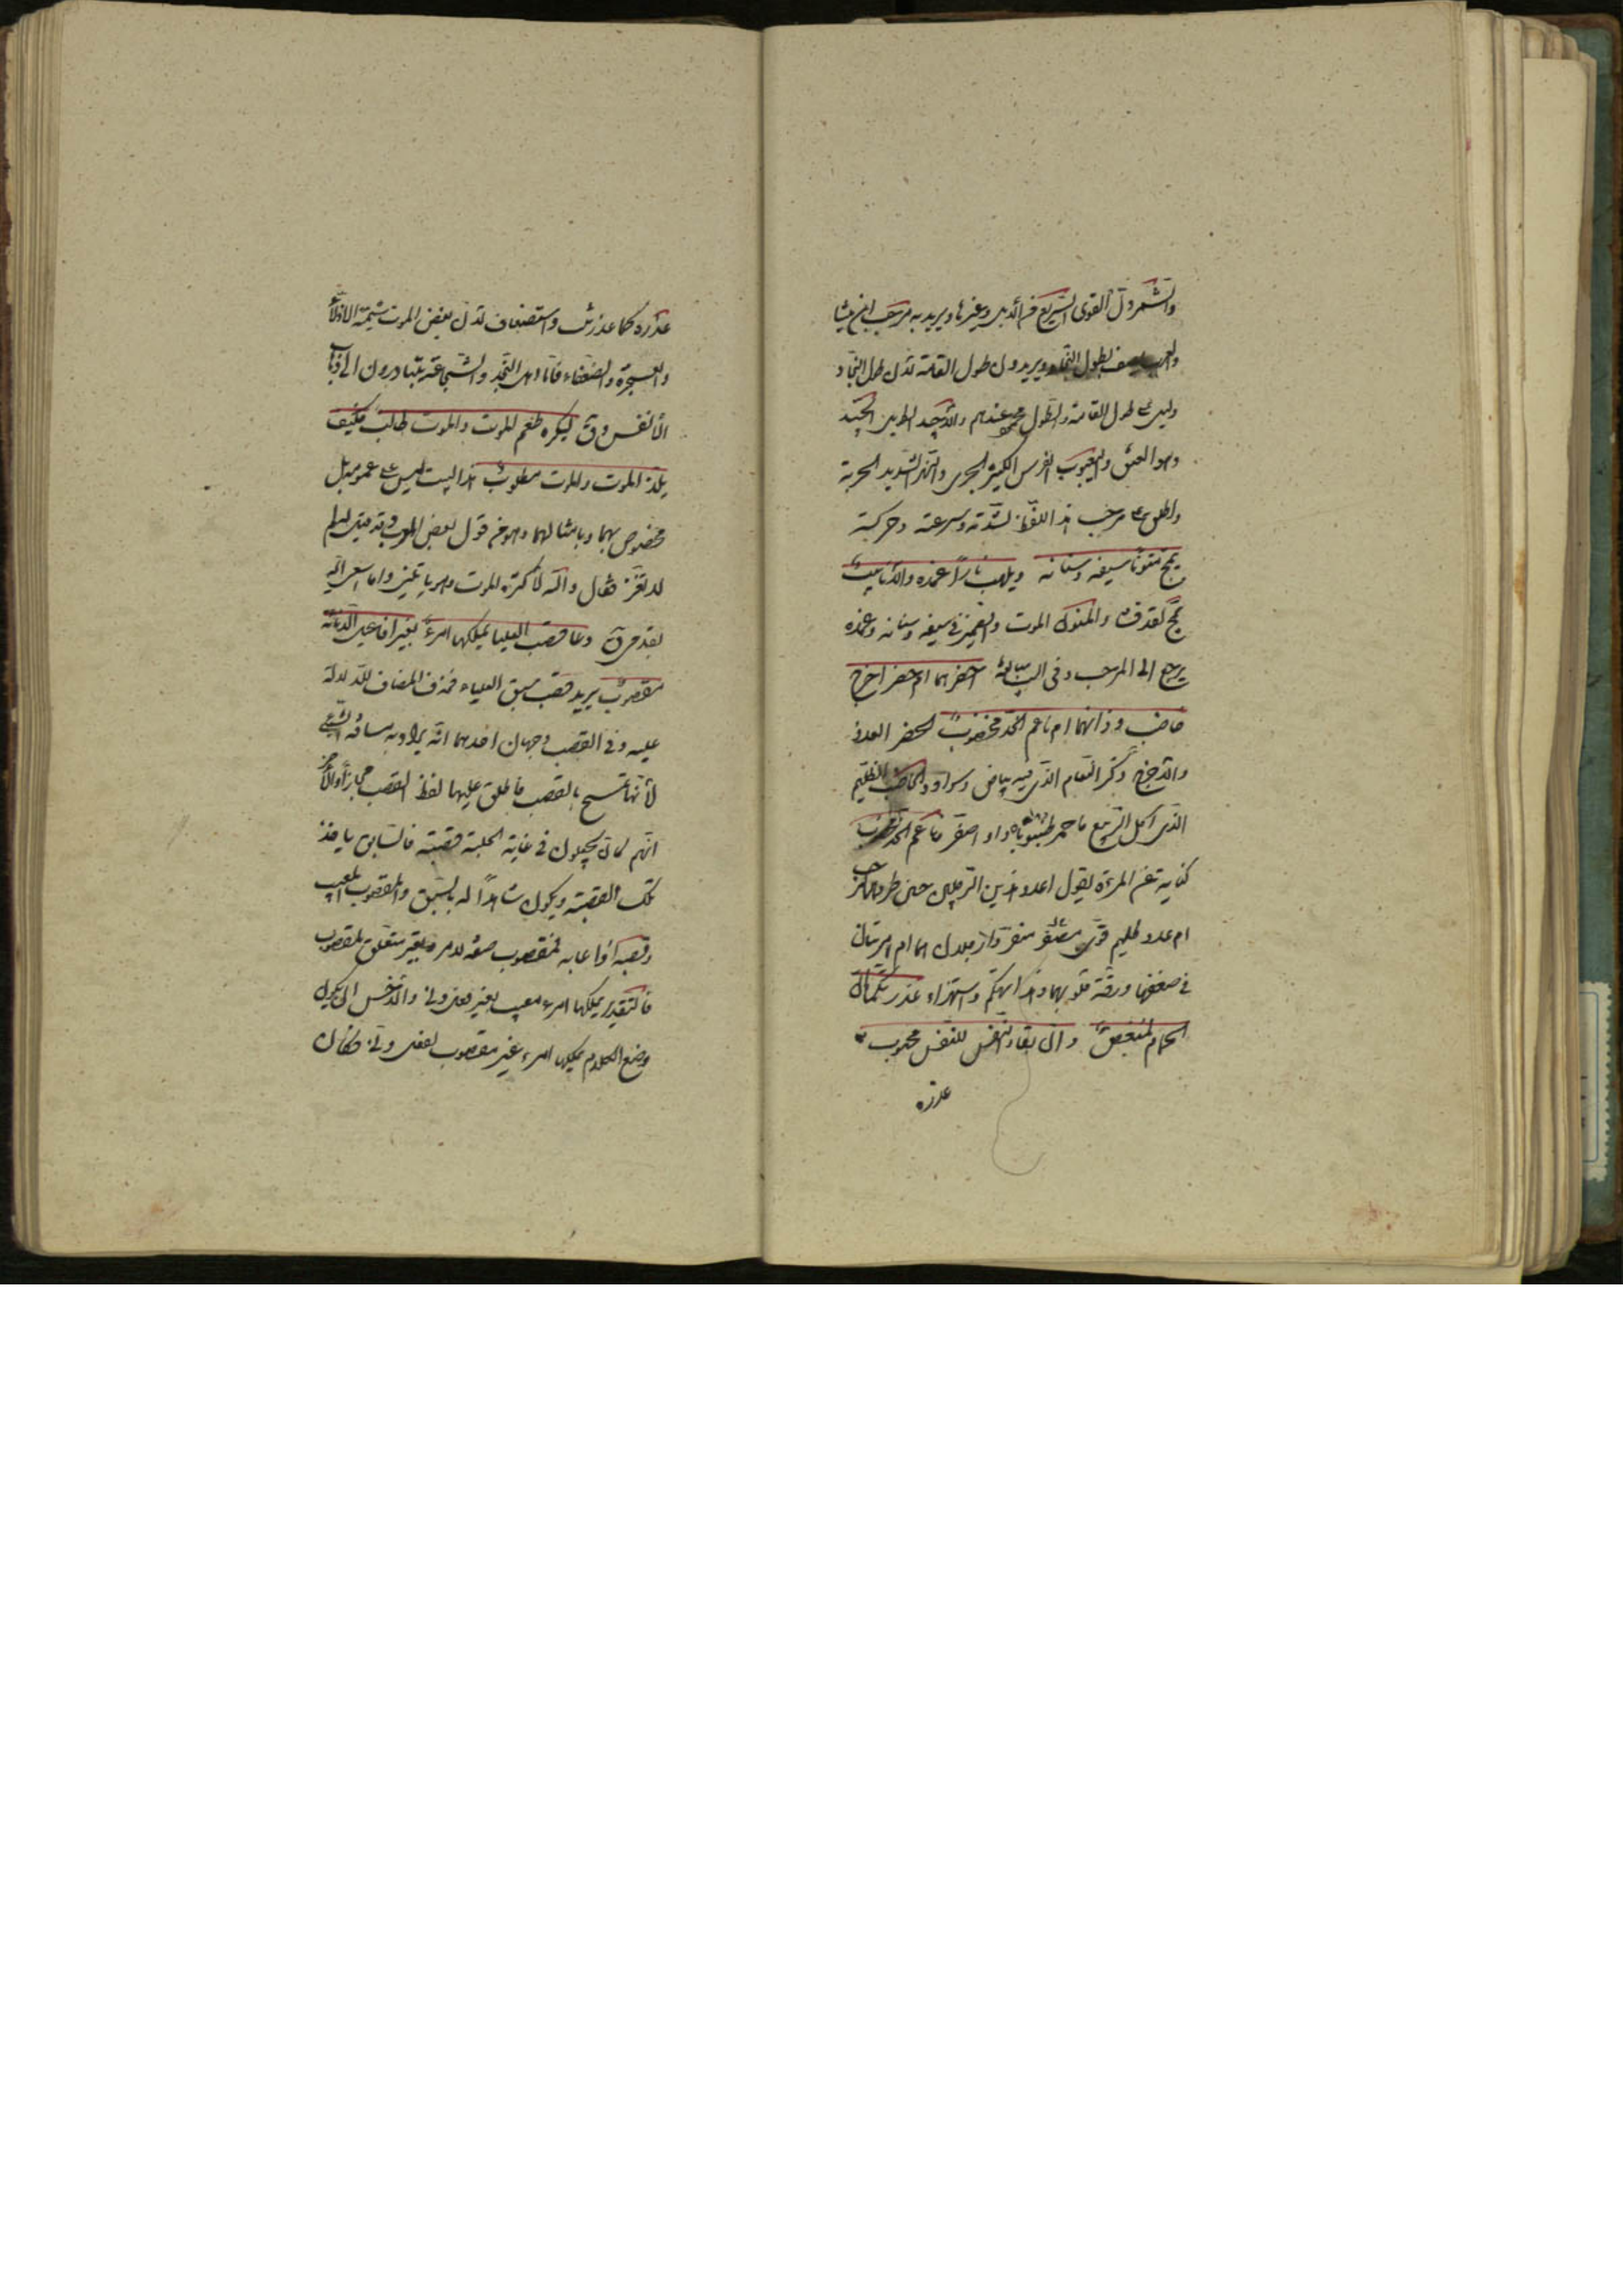 والشمردل القوى السريع من الابل وغيرها ويريد به مرحب ابن ميشا
والعرب تصف بطول النجاد ويريدون طول القامة لان طول النجاد
دليل على طول القامة والطول محمود عندهم والاجيد الطويل الجيد
وهو العنق واليعبوب الفرس الكثير الجرى والنهر الشديد الجرية
واطلق على مرحب هذا اللفظ لشدته وسرعته وحركته
يمج منونا سيفه وسنانه ويلهب نارا غمده والانابيب
يمج يقذف والمنون الموت والضمير فى سيفه وسنانه وغمده
يرجع الى المرحب وفى البيت مبالغة احضرهما ام حضر اخرج
خاضب وذانهما ام ناعم الخد مخضوب الحضر العدو
والاخرج ذكر النعام الذى فيه بياض وسواد والخاضب الظليم
الذى اكل الربيع فاحمر ظنبوباه او اصفر ناعم الخد مخضوب
كناية عن المرءة يقول اعدو هذين الرجلين حين فرا من مرحب
ام عدو ظليم قوى منفردا رجلان هما ام امرتان
فى ضعفهما ورقة قلوبهما وهذا تهكم واستهزاء عذرتكما ان
الحمام لمبغض وان بقاء النفس للنفس محبوب
عذره
عذره كما عذرت واستضعاف لان بغض الموت شيمة الاذلاء
والعجزة والضعفاء فاما اهل النجد والشجاعة يتبادرون الى ذهاب
الانفس وق ليكره طعم الموت والموت طالب فكيف
يلذ الموت والموت مطلوب هذا البيت ليس على عمومه بل
مخصوص بهما وبامثالهما وهو من قول بعض العرب وقد قيل له لم
لا تغز فقال والله لاكره الموت وهو ياتينى واما اسعى اليه
بقدمى ق دعا قصب العليا يملكها امرء بغير افاعيل الدناءة
مقصوب يريد قصب سبق العلياء فحذف المضاف للدلالة
عليه وفى القصب وجهان احدهما انه يراد به مسافة الشئ
لانها تمسح بالقصب فاطلق عليها لفظ القصب مجازا والآخر
انهم كانوا يجعلون فى غاية الحلبة قصبة فالسابق ياخذ
تلك القصبة ويكون شاهدا له بالسبق والمقصوب المعيب
وقصبه اذا عابه فمقصوب صفة لامرء وبغير متعلق بمقصوب
فالتقدير يملكها امرء معيب بغير فعل دنى والاحسن ان يكون
وضع الكلام يملكها امرء غير مقصوب بفعل دنى فكان